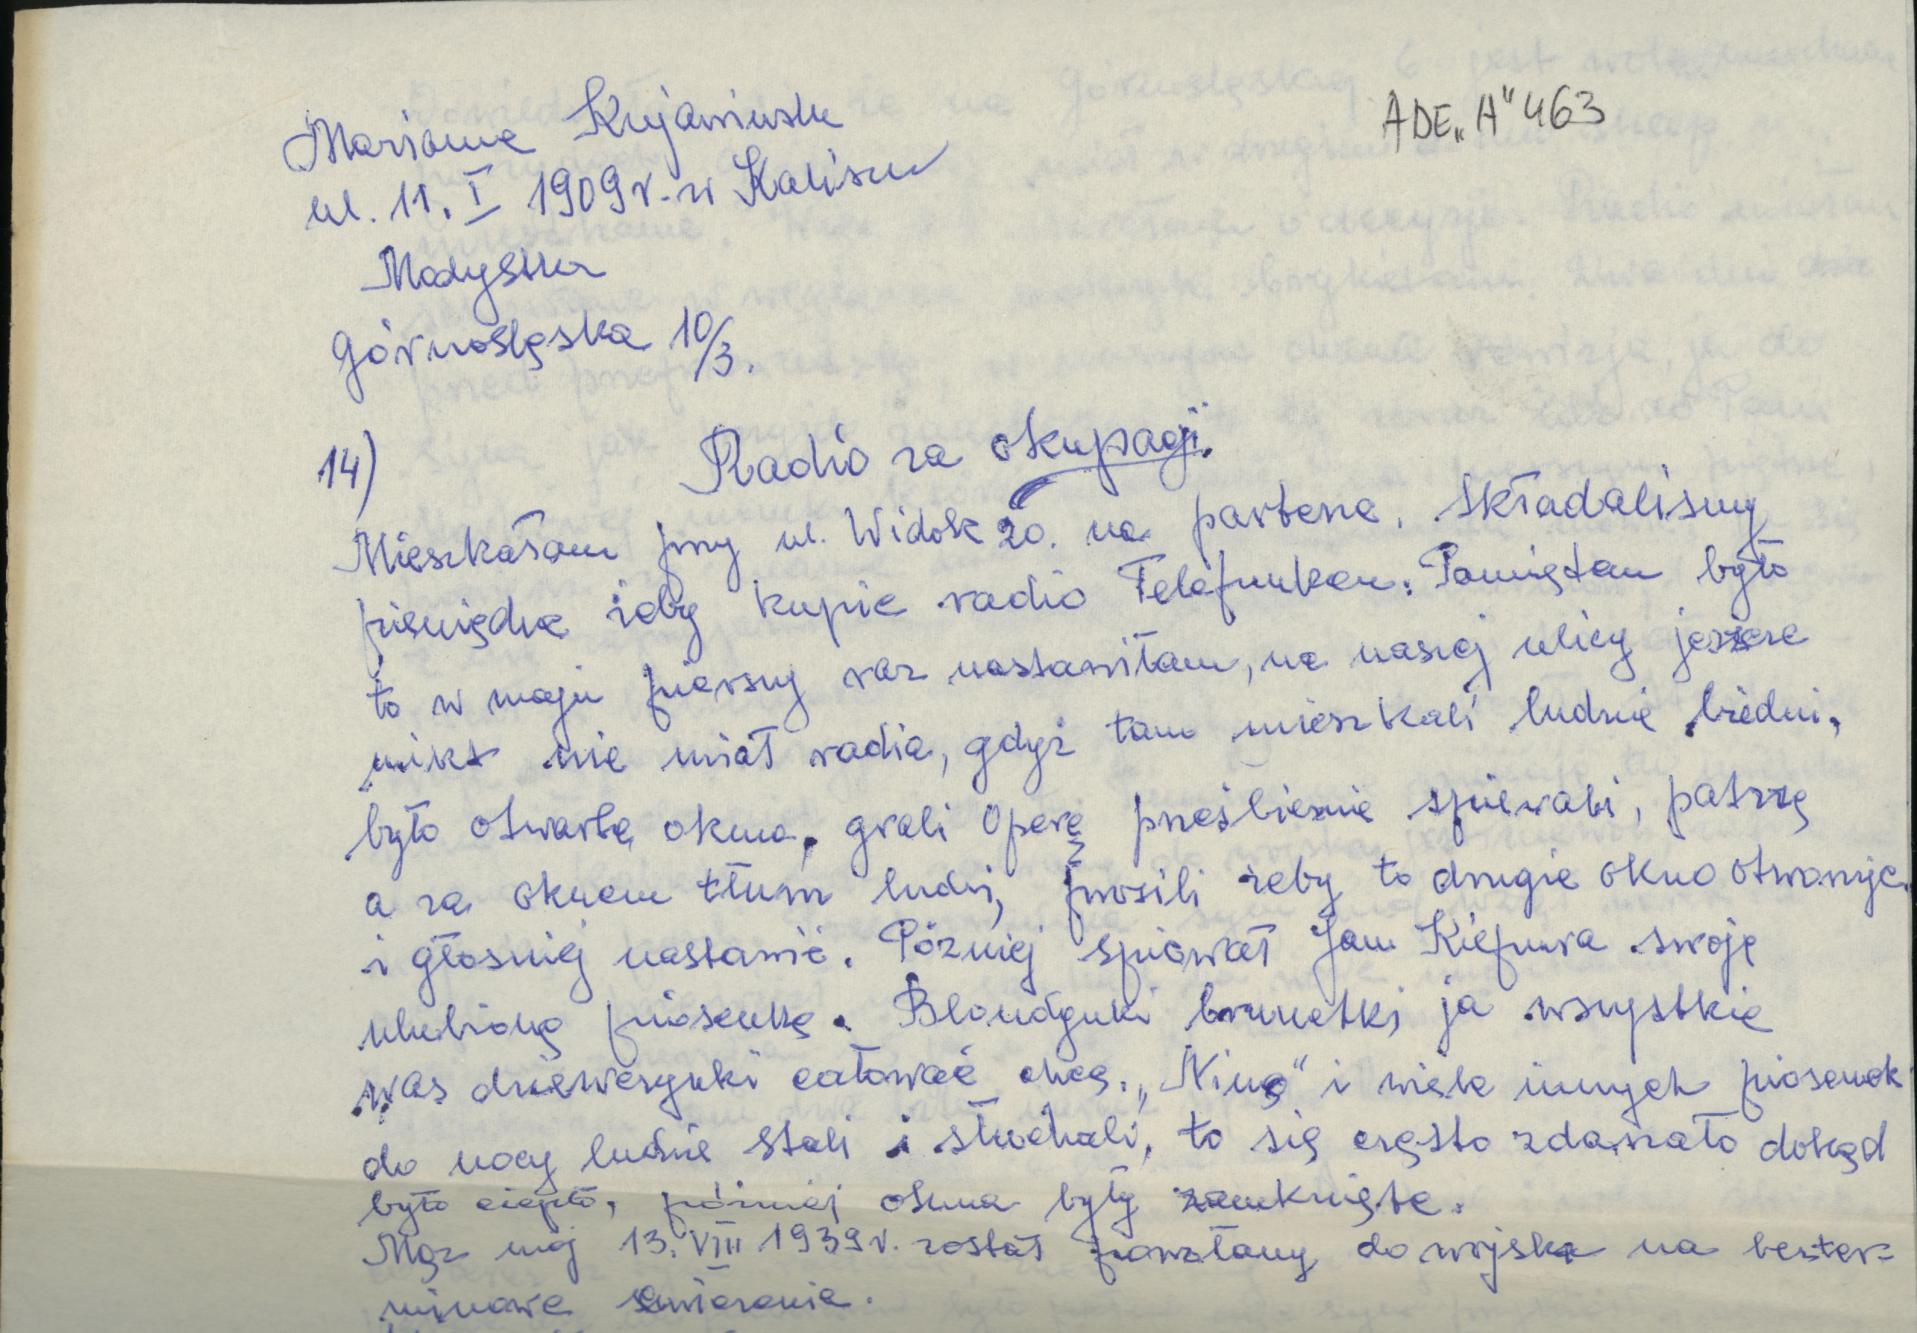 ADE „A" 463
Marianna Kujawińska
ur. 11. I 1909 r. w Kaliszu
Modystka
Górnośląska 10/3.
14) Radio za okupacji.
Mieszkałam przy ul. Widok 20. na parterze. Składaliśmy
pieniądze żeby kupić radio Telefunken. Pamiętam było
to w maju pierwszy raz nastawiłam, na naszej ulicy jeszcze
nikt nie miał radia, gdyż tam mieszkali ludzie biedni,
było otwarte okno, grali Operę prześlicznie śpiewali, patrzę
a za oknem tłum ludzi, prosili żeby to drugie okno otworzyć
i głośniej nastawić. Później śpiewał Jan Kiepura swoją
ulubioną piosenkę. Blondynki brunetki ja wszystkie
was dziewczynki całować chcę. „Nino" i wiele innych piosenek
do nocy ludzie stali i słuchali, to się często zdarzało dokąd
było ciepło, później okna były zamknięte.
Mąż mój 13. VIII 1939 r. został powołany do wojska na bezter-
minowe ćwiczenie.